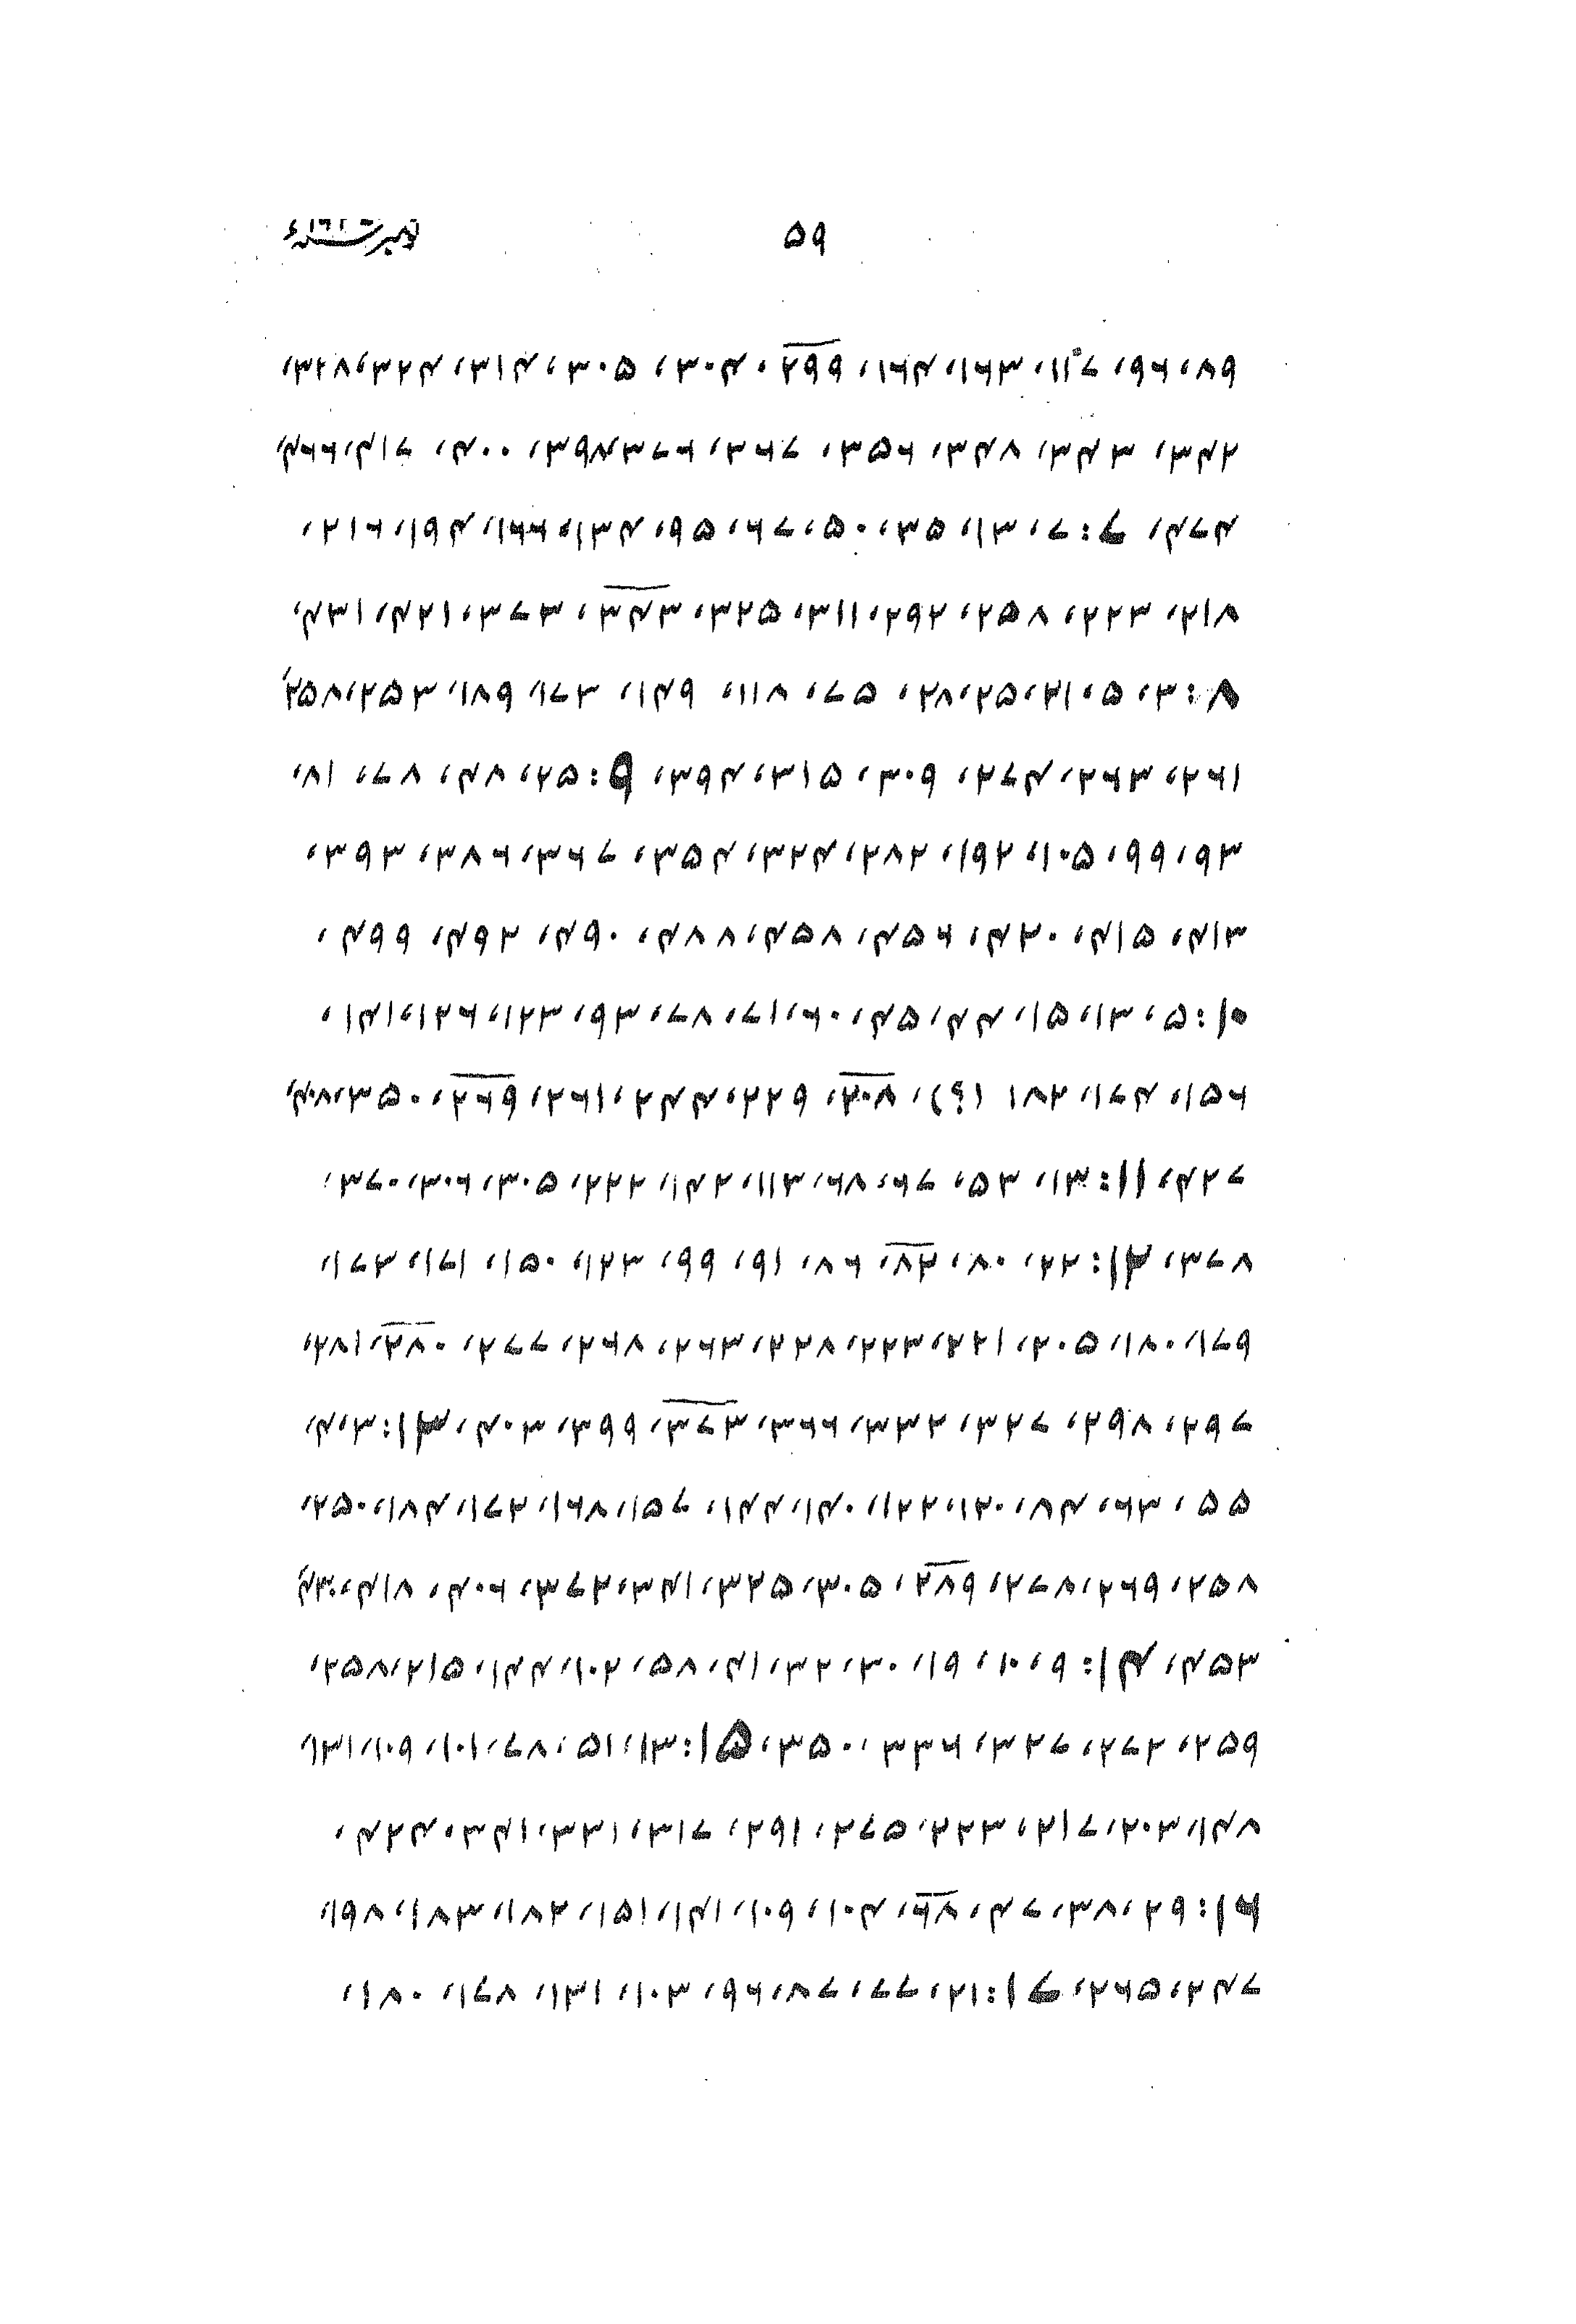 ۵۹ نومبر
۸۹، ۹۶، ۱۱۷، ۱۶۳، ۱۶۴، ۲۹۹، ۳۰۴، ۳۰۵، ۳۱۴، ۳۲۴، ۳۲۸،
۳۴۲، ۳۴۳، ۳۴۸، ۳۵۶، ۳۶۷، ۳۷۶، ۳۹۸، ۴۰۰، ۴۱۷، ۴۶۶،
۴۷۴، ۷: ۷، ۱۳، ۳۵، ۵۰، ۶۷، ۹۵، ۱۳۴، ۱۶۶، ۱۹۴، ۲۱۶،
۲۱۸، ۲۲۳، ۲۵۸، ۲۹۲، ۳۱۱، ۳۲۵، ۳۴۳، ۳۷۳، ۴۲۱، ۴۳۱،
۸: ۳، ۵، ۲۱، ۲۵، ۲۸، ۷۵، ۱۱۸، ۱۴۹، ۱۷۳، ۱۸۹، ۲۵۳، ۲۵۸،
۲۶۱، ۲۶۳، ۲۷۴، ۳۰۹، ۳۱۵، ۳۹۴، ۹: ۲۵، ۴۸، ۷۸، ۸۱،
۹۳، ۹۹، ۱۰۵، ۱۹۲، ۲۸۲، ۳۲۴، ۳۵۴، ۳۶۷، ۳۸۶، ۳۹۳،
۴۱۳، ۴۱۵، ۴۲۰، ۴۵۶، ۴۵۸، ۴۸۸، ۴۹۰، ۴۹۲، ۴۹۹،
۱۰: ۵، ۱۳، ۱۵، ۴۴، ۴۵، ۶۰، ۷۱، ۷۸، ۹۳، ۱۲۳، ۱۲۶، ۱۴۱،
۱۵۶، ۱۷۴، ۱۸۲ (؟)، ۲۰۸، ۲۲۹، ۲۴۴، ۲۶۱، ۲۶۹، ۳۵۰، ۴۰۸،
۴۲۷، ۱۱: ۱۳، ۵۳، ۶۷، ۶۸، ۱۱۳، ۱۴۲، ۲۲۲، ۳۰۵، ۳۰۶، ۳۷۰،
۳۷۸، ۱۲: ۲۲، ۸۰، ۸۲، ۸۶، ۹۱، ۹۹، ۱۲۳، ۱۵۰، ۱۷۱، ۱۷۳،
۱۷۹، ۱۸۰، ۲۰۵، ۲۲۱، ۲۲۳، ۲۲۸، ۲۶۳، ۲۶۸، ۲۷۷، ۲۸۰، ۲۸۱،
۲۹۷، ۲۹۸، ۳۲۷، ۳۳۲، ۳۶۶، ۳۷۳، ۳۹۹، ۴۰۳، ۱۳: ۳، ۴،
۵۵، ۶۳، ۸۴، ۱۲۰، ۱۲۲، ۱۴۰، ۱۴۴، ۱۵۷، ۱۶۸، ۱۷۲، ۱۸۴، ۲۵۰،
۲۵۸، ۲۶۹، ۲۷۸، ۲۸۹، ۳۰۵، ۳۲۵، ۳۴۱، ۳۷۲، ۴۰۶، ۴۱۸، ۴۳۰،
۴۵۳، ۱۴: ۹، ۱۰، ۱۹، ۳۰، ۳۲، ۴۱، ۵۸، ۱۰۲، ۱۴۴، ۲۱۵، ۲۵۸،
۲۵۹، ۲۷۲، ۳۲۷، ۳۳۶، ۳۵۰، ۱۵: ۱۳، ۱۵، ۷۸، ۱۰۱، ۱۰۹، ۱۳۱،
۱۴۸، ۲۰۳، ۲۱۷، ۲۲۳، ۲۷۵، ۲۹۱، ۳۱۷، ۳۳۱، ۳۴۱، ۴۲۴،
۱۶: ۲۹، ۳۸، ۴۷، ۶۸، ۱۰۴، ۱۰۹، ۱۴۱، ۱۵۱، ۱۸۲، ۱۸۳، ۱۹۸،
۲۴۷، ۲۶۵، ۱۷: ۲۱، ۷۷، ۸۷، ۹۶، ۱۰۳، ۱۳۱، ۱۷۸، ۱۸۰،